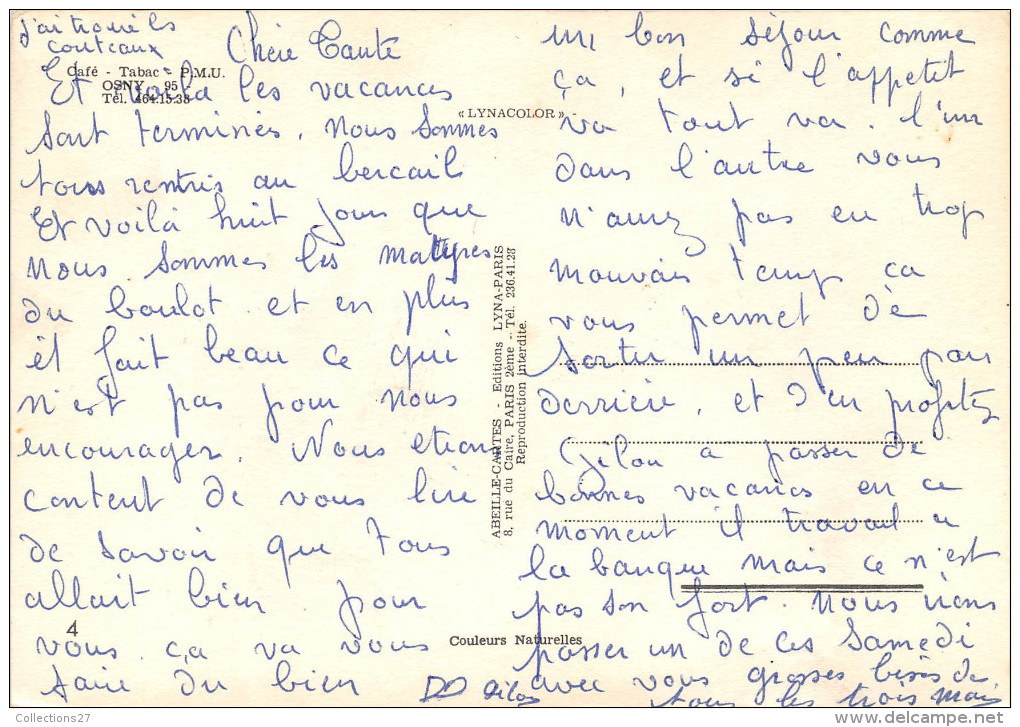 J'ai trouvé les
couteaux
Chère Tante
Café - Tabac - P.M.U.
OSNY - 95 -
Tél. 464.15.38
Et voilà les vacances
sont terminés. Nous sommes
tous rentrés au bercail
Et voilà huit jours que
nous sommes les martyres
du boulot et en plus
il fait beau ce qui
n'est pas pour nous
encourager. Nous etions
content de vous lire
de savoir que tous
allait bien pour
vous. ça va vous
faire du bien
un bon séjour comme
ça, et si l'appetit
va tout va. L'un
dans l'autre vous
n'aurez pas eu trop
mauvais temps ça
vous permet de
sortir un peu par
derrière, et d'en profitez
Gilou a passer de
bonnes vacances en ce
moment il travail a
la banque mais ce n'est
pas son fort. Nous irons
passer un de ces samedi
avec vous grosses bises de
tous les trois mais
DD Gilou
« LYNACOLOR »
ABEILLE-CARTES - Editions LYNA-PARIS
8, rue du Caire, PARIS 2ème - Tél. 236.41.28
Reproduction interdite.
4
Couleurs Naturelles
Collections27
delcampe.net